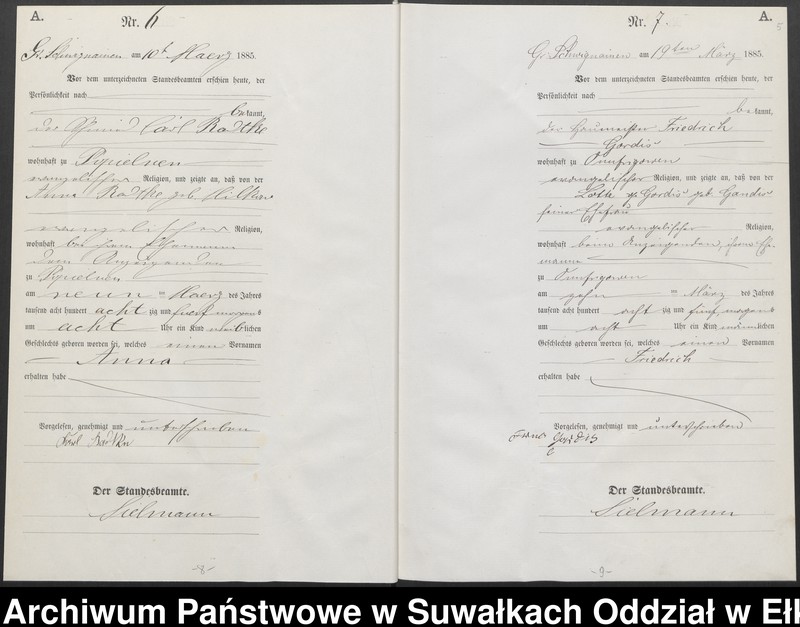 A.
Nr. 6
Gr. Schwignainen am 10t Maerz 1885.
Vor dem unterzeichneten Standesbeamten erschien heute, der
Persönlichkeit nach
bekannt,
der Carl Radtke
wohnhaft zu
evangelischer Religion, und zeigte an, daß von der
Anna Radtke geb.
evangelischer Religion,
wohnhaft bei
dem Anzeigenden
zu
am neun ten Maerz des Jahres
tausend acht hundert acht zig und fuenf morgens
um acht Uhr ein Kind weiblichen
Geschlechts geboren worden sei, welches einen Vornamen
Anna
erhalten habe
Vorgelesen, genehmigt und unterschrieben
Karl Radtke
Der Standesbeamte.
Sielmann
-8-
Nr. 7.
A.
5
Gr. Schwignainen am 19ten März 1885.
Vor dem unterzeichneten Standesbeamten erschien heute, der
Persönlichkeit nach
bekannt,
der Friedrich
Gordis
wohnhaft zu
evangelischer Religion, und zeigte an, daß von der
Gordis geb. Gander
seiner Ehefrau
evangelischer Religion,
wohnhaft beim Anzeigenden, ihrem Ehe-
manne
zu
am zehn ten März des Jahres
tausend acht hundert acht zig und fünf morgens
um acht Uhr ein Kind männlichen
Geschlechts geboren worden sei, welches einen Vornamen
Friedrich
erhalten habe
Vorgelesen, genehmigt und unterschrieben
Gordis
Der Standesbeamte.
Sielmann
-9-
Archiwum Państwowe w Suwałkach Oddział w Ełk